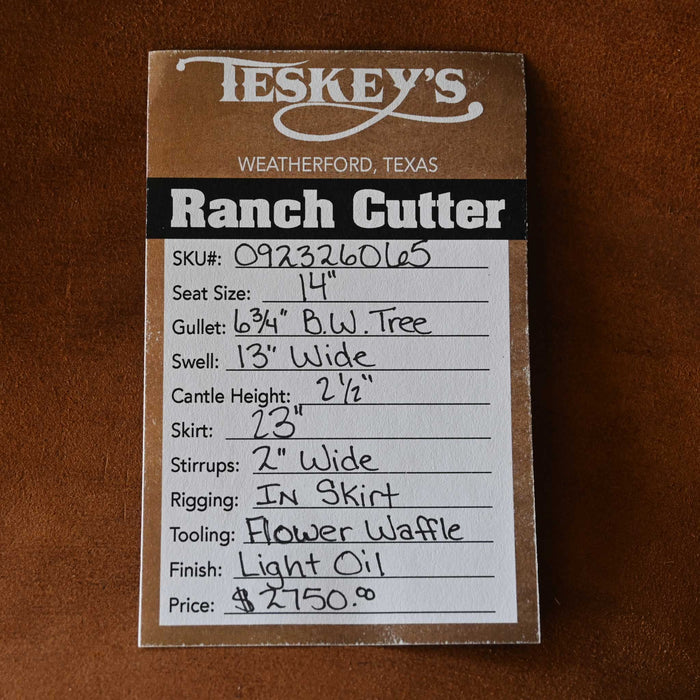 TESKEY'S
WEATHERFORD, TEXAS
Ranch Cutter
SKU#: 0923260065
Seat Size: 14"
Gullet: 6¾" B.W. Tree
Swell: 13" Wide
Cantle Height: 2½"
Skirt: 23"
Stirrups: 2" Wide
Rigging: In Skirt
Tooling: Flower Waffle
Finish: Light Oil
Price: $2750.00